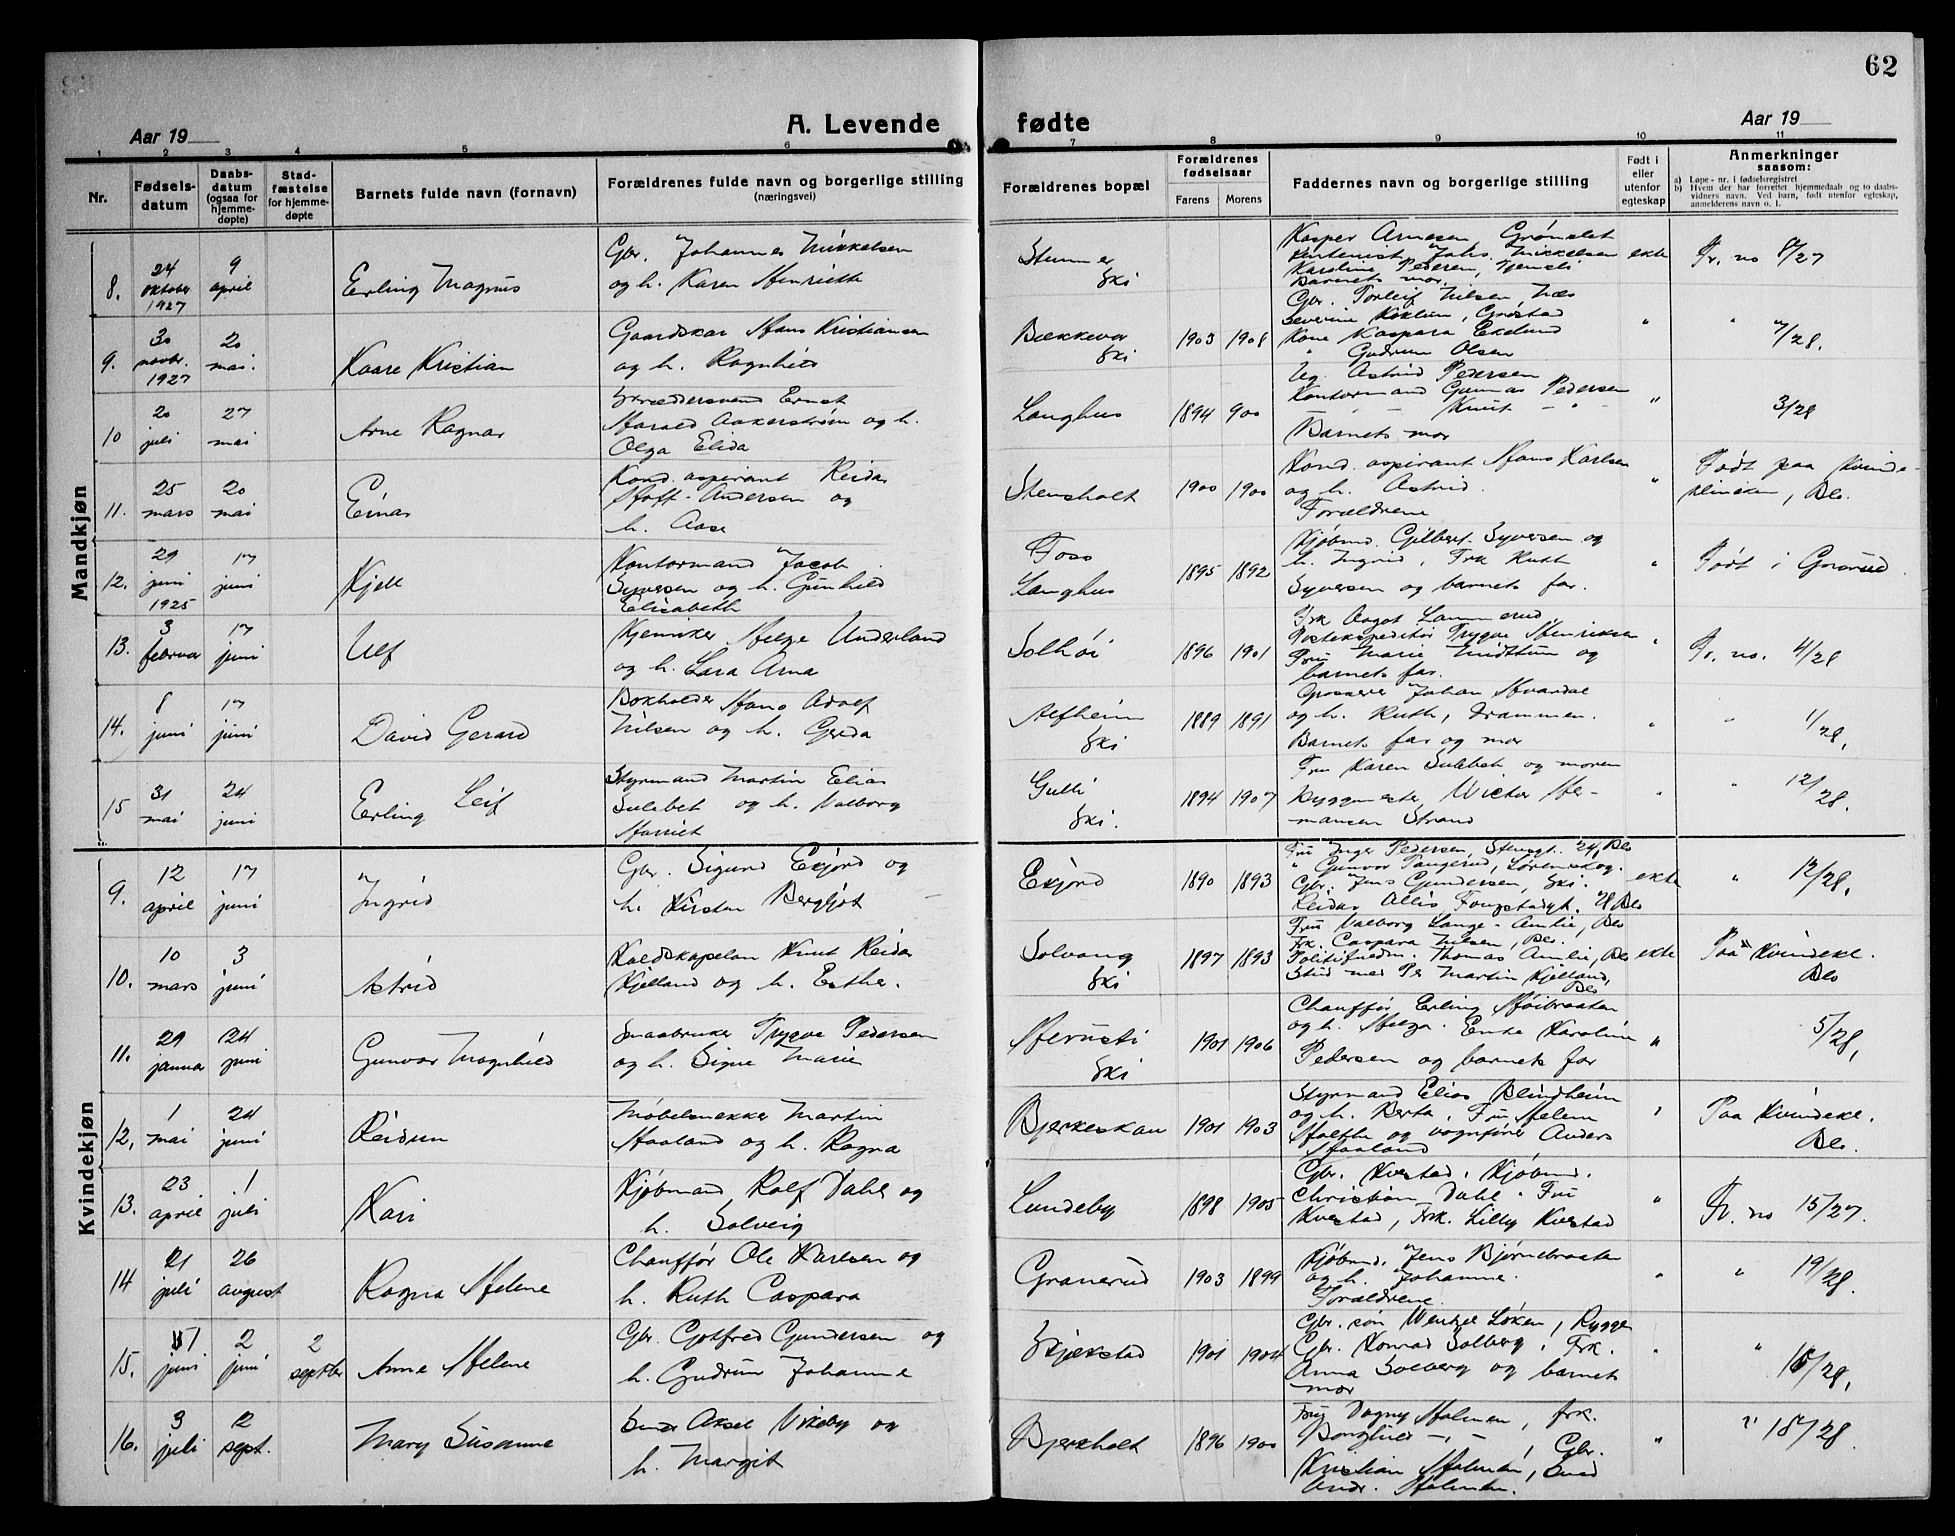 62
Aar 19
A. Levende
fødte
Aar 19
1 2 3 4 5 6 7 8 9 10 11
Nr.
Fødsels-
datum
Daabs-
datum
(ogsaa for
hjemme-
døpte)
Stad-
fæstelse
for hjemme-
døpte
Barnets fulde navn (fornavn)
Forældrenes fulde navn og borgerlige stilling
(næringsvei)
Forældrenes bopæl
Forældrenes
fødselsaar
Farens Morens
Faddernes navn og borgerlige stilling
Født i
eller
utenfor
egteskap
Anmerkninger
saasom:
a) Løpe-nr. i fødselsregistret
b) Hvem der har forrettet hjemmedaab og to daabs-
vidners navn. Ved barn, født utenfor egteskap,
anmelderens navn o. l.
Mandkjøn
8.
24
oktober
1927
9
april
Erling Magnus
Gbr. Johannes Mikkelsen
og h. Karen Henriette
Stunner
Ski
Kasper Arnesen
Johs. Mikkelsen
Karoline Pedersen,
Barnets mor.
ekte
Fr. no 8/27
9.
30
novbr.
1927
20
mai.
Kaare Kristian
Gaardskar Hans Kristiansen
og h. Ragnhild
Bækkevar
Ski
1903 1908
Gbr. Torleif Nilsen, Næs
Severine
Kone Kaspara Ekelund
" Gudrun Olsen
"
" 7/28.
10
20
juli
27
mai
Arne Ragnar
Skræddersvend Ernst
Harald Aakerstrøm og h.
Olga Elida
Langhus
1894 900
Ug. Astrid Pedersen
Kontormand Gunnar Pedersen
— " — Knut — " —
Barnets mor
"
3/28
11.
25
mars
20
mai
Einar
Kond. aspirant Reidar
Hoff-Andersen og
h. Aase
Stensholt
1900 1900
Kond. aspirant Hans Karlsen
og h. Astrid.
Forældrene
"
Født paa Kvinde-
kliniken, Oslo.
12.
29
juni
1925
17
juni
Kjell
Kontormand Jacob
Syversen og h. Gunhild
Elisabeth
Foss
Langhus
1895 1892
Kjøbmd. Gilbert Syversen og
h. Ingrid, Frk Ruth
Syversen og barnets far.
"
Født i Grorud
13.
3
februar
17
juni
Ulf
Kjemiker Helge Underland
og h. Lara Arna
Solhøi
1896 1901
Frk Aagot Lammerud
Postekspeditør Trygve Henriksen
Fru Marie Midttun og
barnets far.
"
Fr. no. 4/28
14.
8
juni
17
juni
David Gerard
Bokholder Hans Adolf
Nilsen og h. Gerda
Alfheim
Ski
1889 1891
Grosserer Johan Hvardal
og h. Ruth, Drammen.
Barnets far og mor
"
" 1/28,
15
31
mai
24
juni
Erling Leif
Styrmand Martin Elias
Sulebot og h. Valborg
Harriet
Gulli
Ski.
1894 1907
Fru Karen Sulebot og moren
Byggmester Victor Her-
mansen Strand
"
" 12/28.
Kvindekjøn
9.
12
april
17
juni
Ingrid
Gbr. Sigurd Exjord og
h. Kirsten Bergljot
Exjord
1890 1893
Fru Inger Pedersen, Stensgt. 24, Oslo
" Gunvor Tangerud, Lørenskog.
Gbr. Jens Gundersen, Ski.
Reidar
ekte
" 12/28,
10.
10
mars
3
juni
Astrid
Knut Reidar
Kjelland og h. Esther.
Solvang
Ski
1897 1893
Fru Valborg Lange-Amlie, Oslo
Frk. Caspara Nilsen, Oslo.
Thomas Amlie, Oslo
Stud med Per Martin Kjelland,
Oslo
ekte
Paa Kvindekl.
Oslo
11.
29
januar
24
juni
Gunvor Magnhild
Smaabruker Trygve Pedersen
og h. Signe Marie
Herusti
Ski
1901 1906
Chauffør Erling Høibraaten
og h. Helga. Enke Karoline
Pedersen og barnets far
"
5/28,
12.
1
mai
24
juni
Reidun
Møbelsnekker Martin
Haaland og h. Ragna
Bjerkeskau
1901 1903
Styrmand Elias Blindheim
og h. Berta, Fru Helene
Holthe og vognfører Anders
Haaland
"
Paa Kvindekl.
Oslo.
13.
23
april
1
juli
Kari
Kjøbmand Rolf Dahl og
h. Solveig
Lundeby
1898 1905
Gbr. Kvestad. Kjøbmd.
Christian Dahl. Fru
Kvestad, Frk. Lilly Kvestad
"
Fr. no 15/27.
14
21
juli
26
august
Ragna Helene
Chauffør Ole Karlsen og
h. Ruth Caspara
Granerud
1903 1899
Kjøbmd. Jens Bjørnebraaten
og h. Johanne.
Forældrene.
"
" 19/28.
15.
juni
2
juni
2
septbr
Anne Helene
Gbr. Gotfred Gundersen og
h. Gudrun Johanne
Skjekstad
1901 1904
Gbr. søn Wentzel Løken, Rygge
Gbr. Konrad Solberg, Frk.
Anna Solberg og barnets
mor
"
" 16/28,
16.
3
juli
12
sept.
Mary Susanne
Smed Aksel Vikeby og
h. Margit
Bjerkholt
1896 1900
Fru Dagny Holmen, frk.
Borghild — " —, Gbr.
Kristian Holmen, Smed
Andr. Holmen.
"
" 18/28